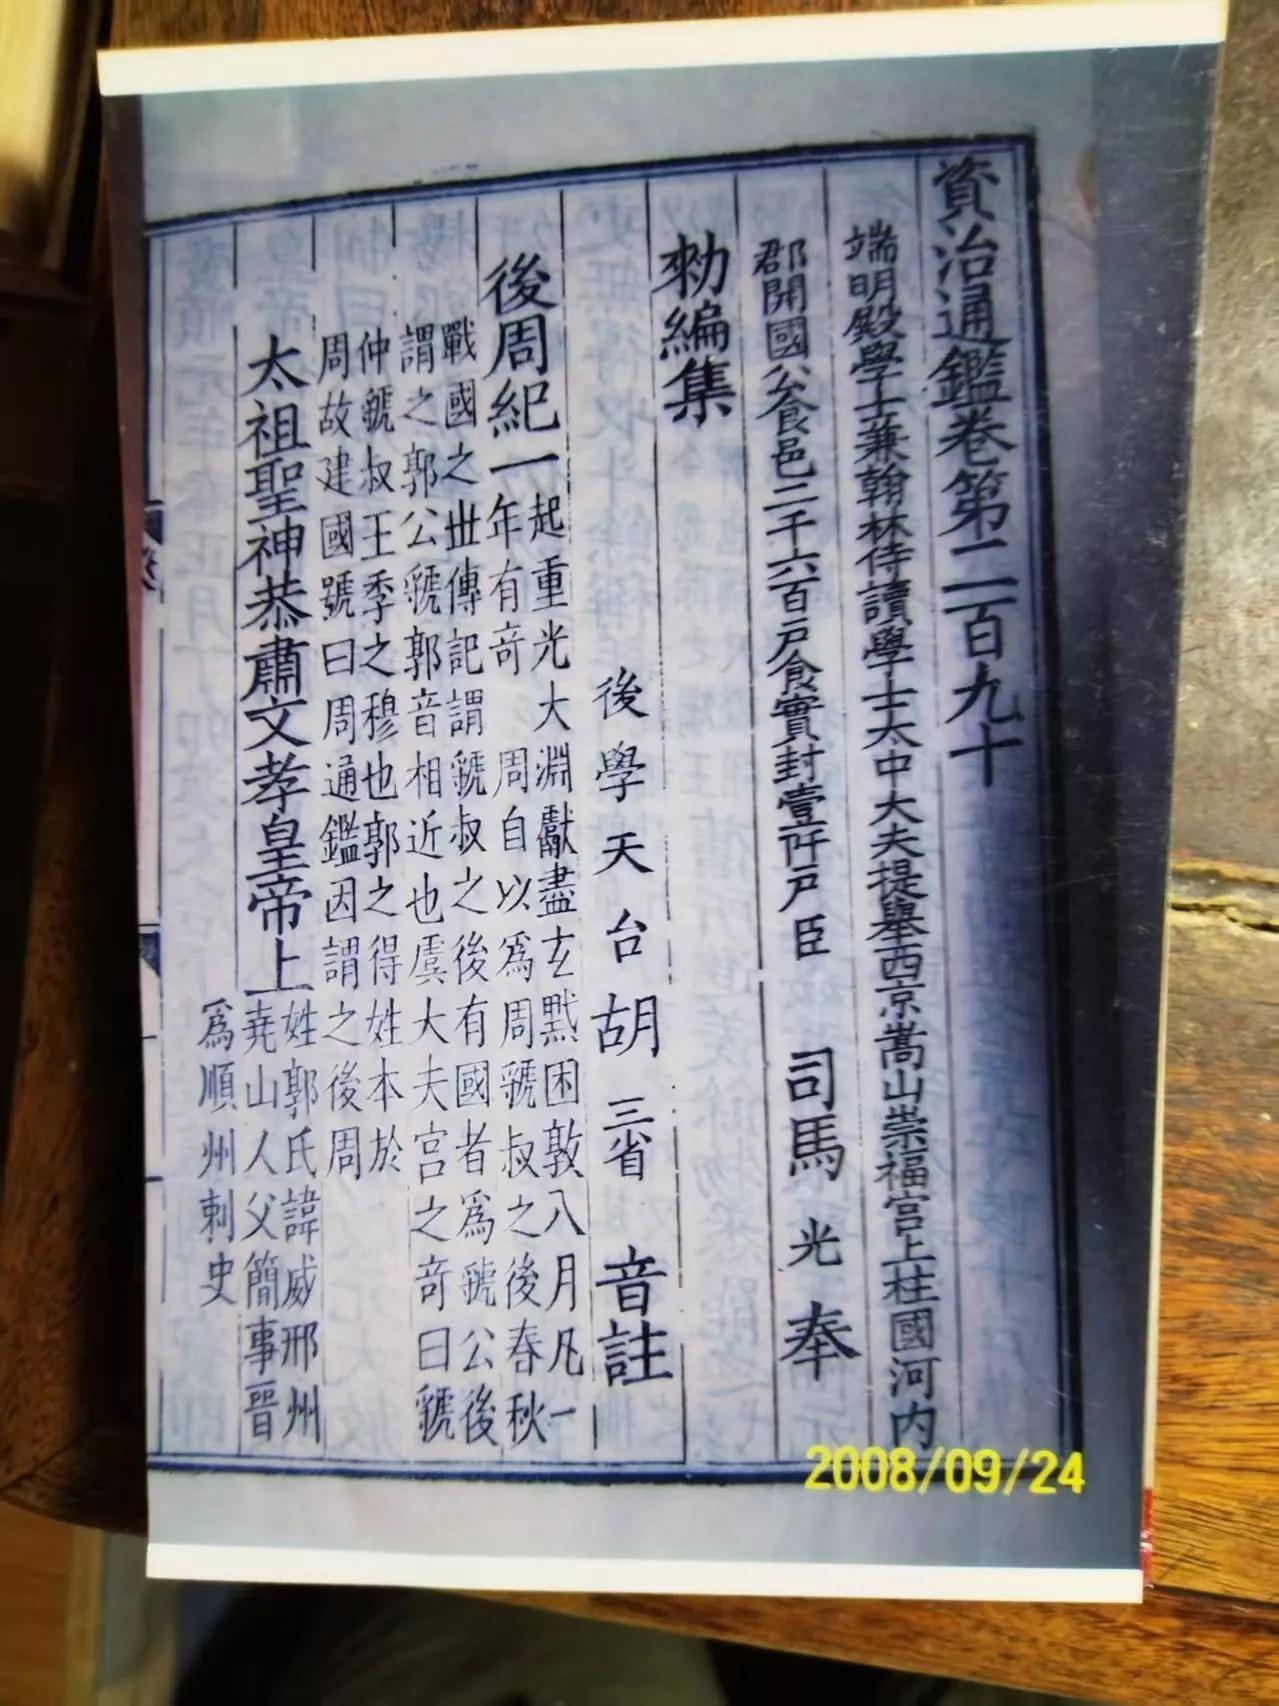 資治通鑑卷第二百九十
端明殿學士兼翰林侍讀學士太中大夫提舉西京嵩山崇福宮上柱國河內
郡開國公食邑二千六百戶食實封壹阡戶臣 司馬 光 奉
勑編集
後學天台胡 三省 音註
後周紀一
起重光大淵獻盡玄黓困敦八月凡一
年有奇 周自以爲周虢叔之後春秋
戰國之世傳記謂虢叔之後有國者爲虢公後
謂之郭公虢郭音相近也虞大夫宮之奇曰虢
仲虢叔王季之穆也郭之得姓本於
周故建國號曰周通鑑因謂之後周
太祖聖神恭肅文孝皇帝上
姓郭氏諱威邢州
堯山人父簡事晉
爲順州刺史
2008/09/24